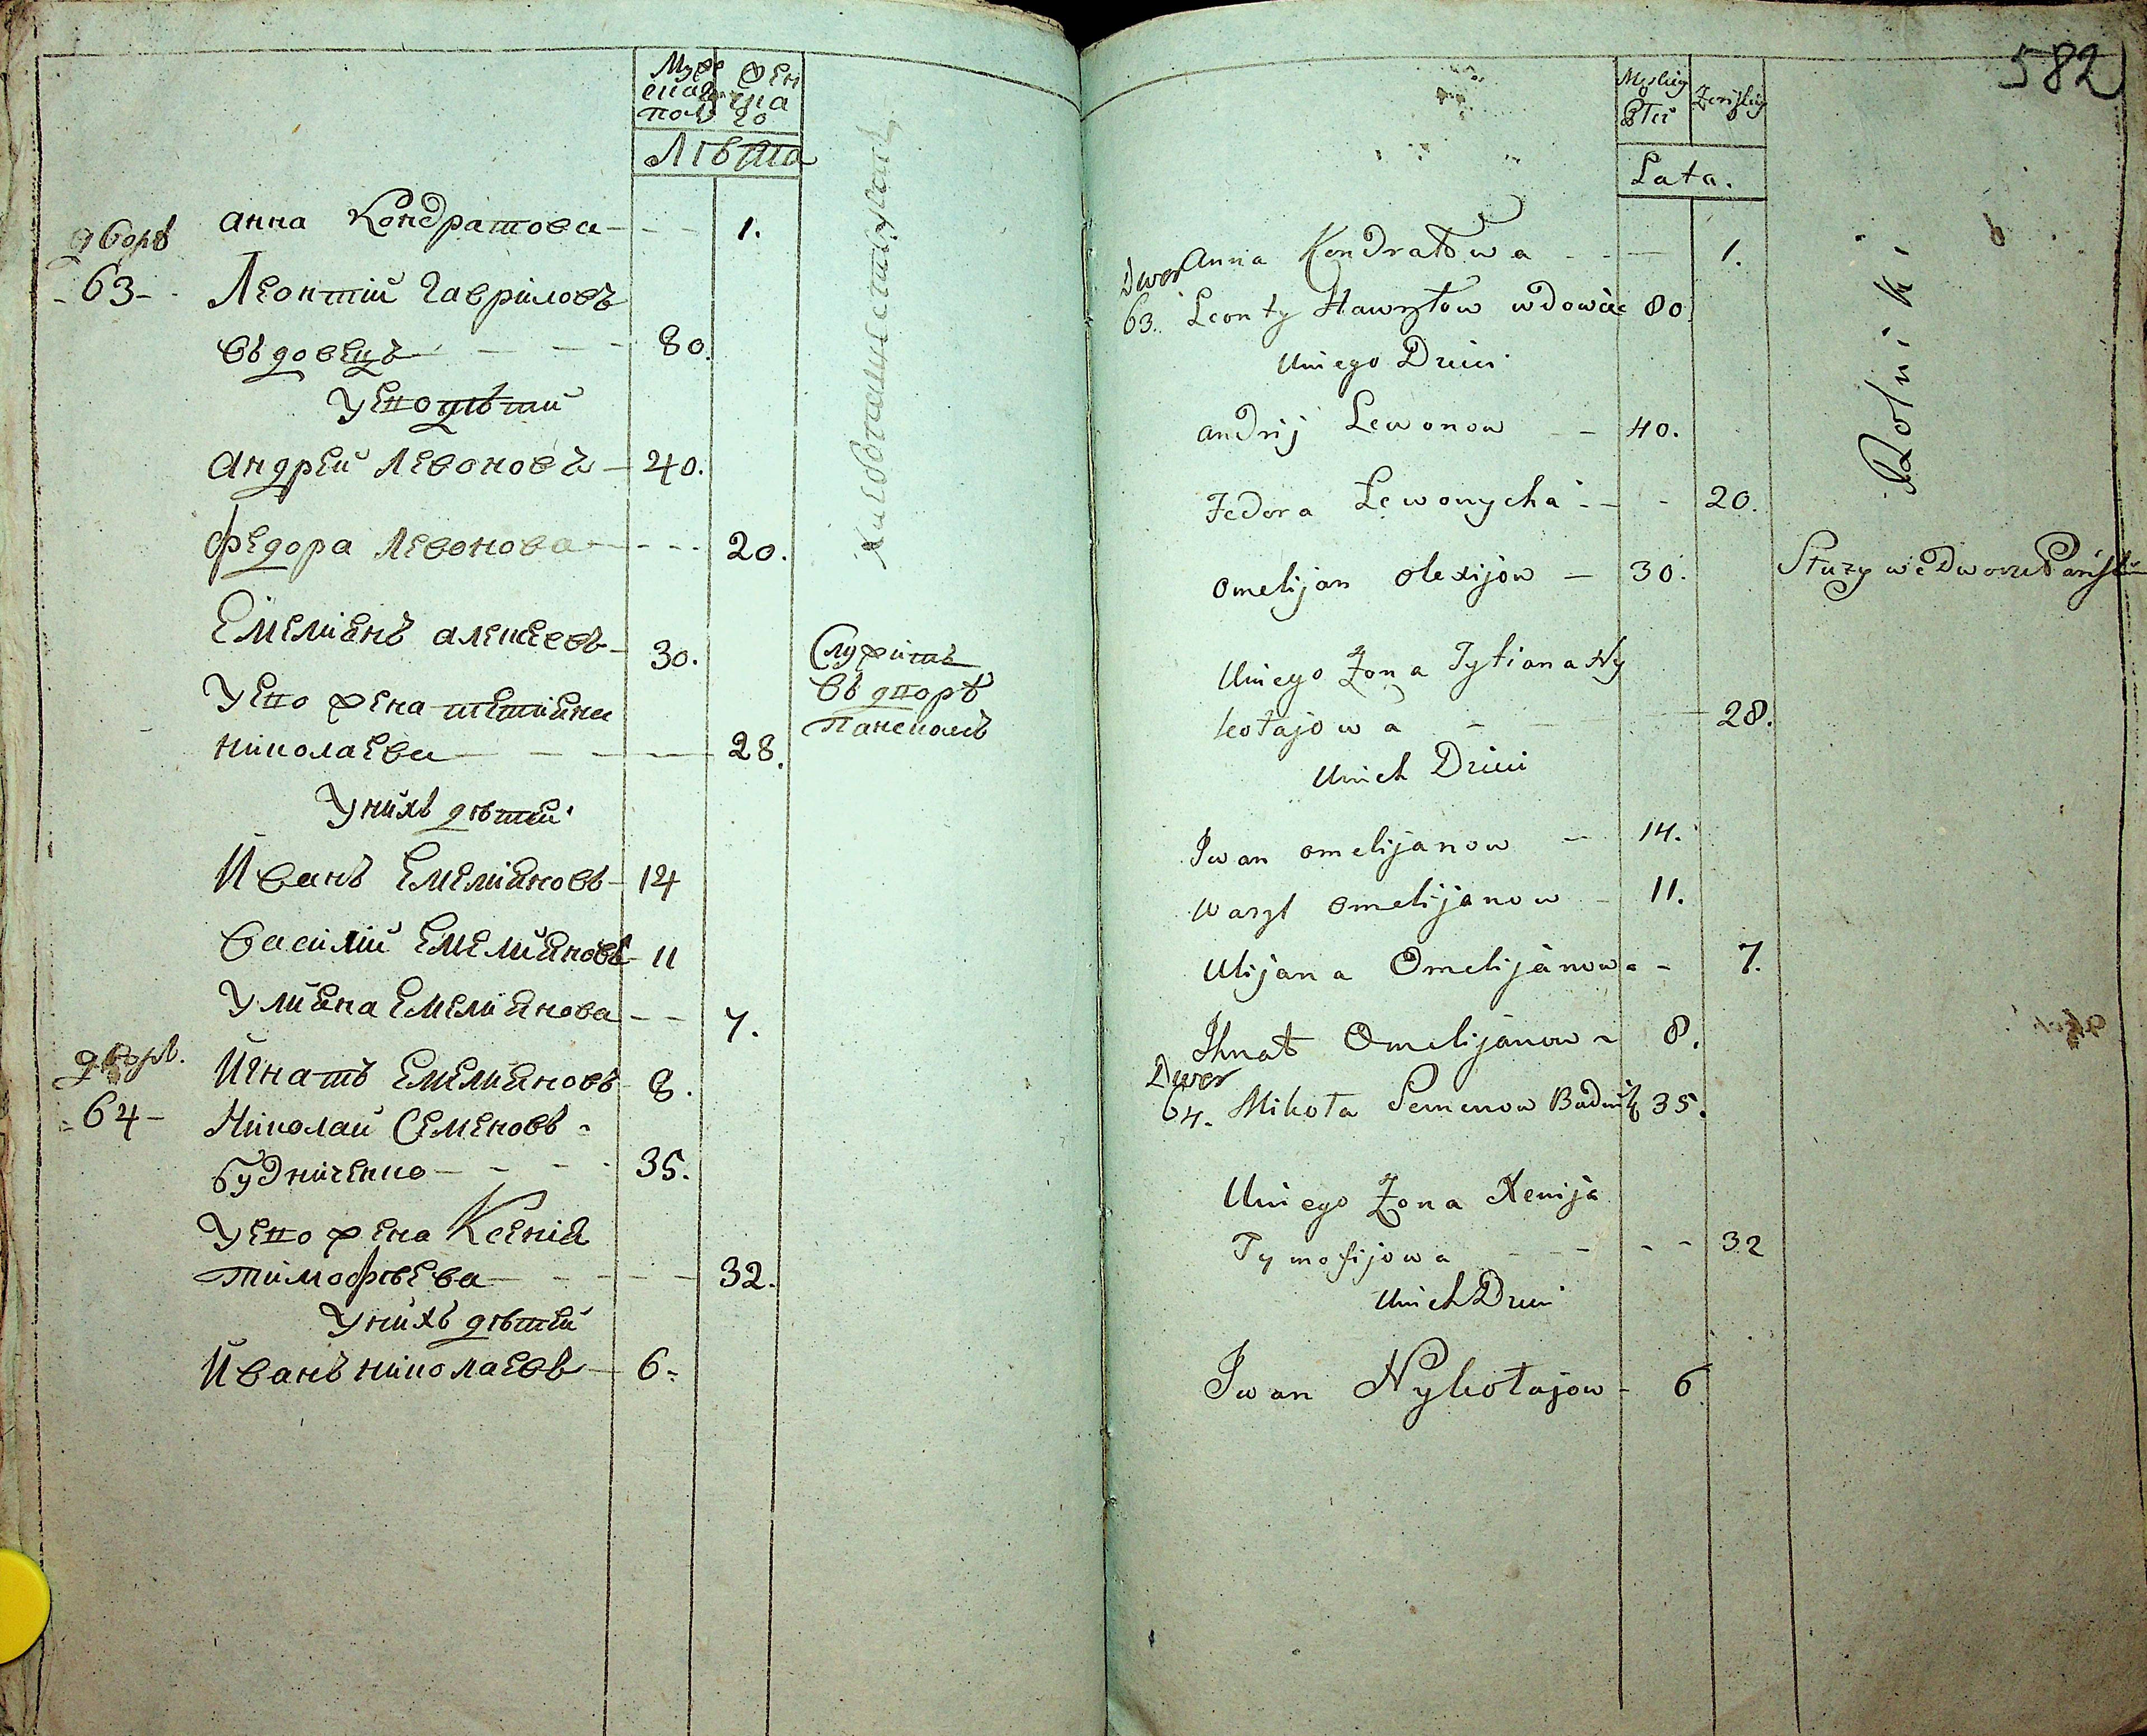 Муже
ска
пол
Жен
ска
го
Лѣта
Анна Кондратова - - - 1.
дворъ
63
Леонтій Гавриловъ
вдовецъ - - - 80.
У его дѣти
Андрей Левоновъ - 40.
Федора Левонова - - - 20.
Емелианъ Алексеевъ - 30.
У его жена Тетиана
Николаева - - - 28.
У нихъ дѣтей
Иванъ Емелиановъ - 14
Василий Емелиановъ - 11
Улиана Емелианова - - 7.
Игнатъ Емелиановъ 8.
дворъ.
64
Николай Семеновъ
Будниченко - - - 35.
У его жена Ксения
Тимофѣева - - - 32.
У нихъ дѣтей
Иванъ Николаевъ - 6
Хлебопашествуютъ
Служитъ
въ дворѣ
панскомъ
582
Męskiey
Płci
Żeńskiey
Lata.
Anna Kondratowa - - 1.
Dwor
63. Leonty Hawryłow wdowiec 80
U niego Dzieci
Andrij Lewonow - - 40.
Fedora Lewonycha - - - 20.
Omelijan Olexijow - 30.
U niego Żona Tytiana Ny
kołajowa - - 28.
U nich Dzieci
Iwan Omelijanow - 14.
Wasyl Omelijanow - 11.
Ulijana Omelijanowa - 7.
Ihnat Omelijanow - 8.
Dwor
64. Mikoła Semenow Budnik 35.
U niego Żona Xenija
Tymofijowa - - - - 32
U nich Dzieci
Iwan Nykołajow - 6
Rolniki
Służy we Dworze Pańskim